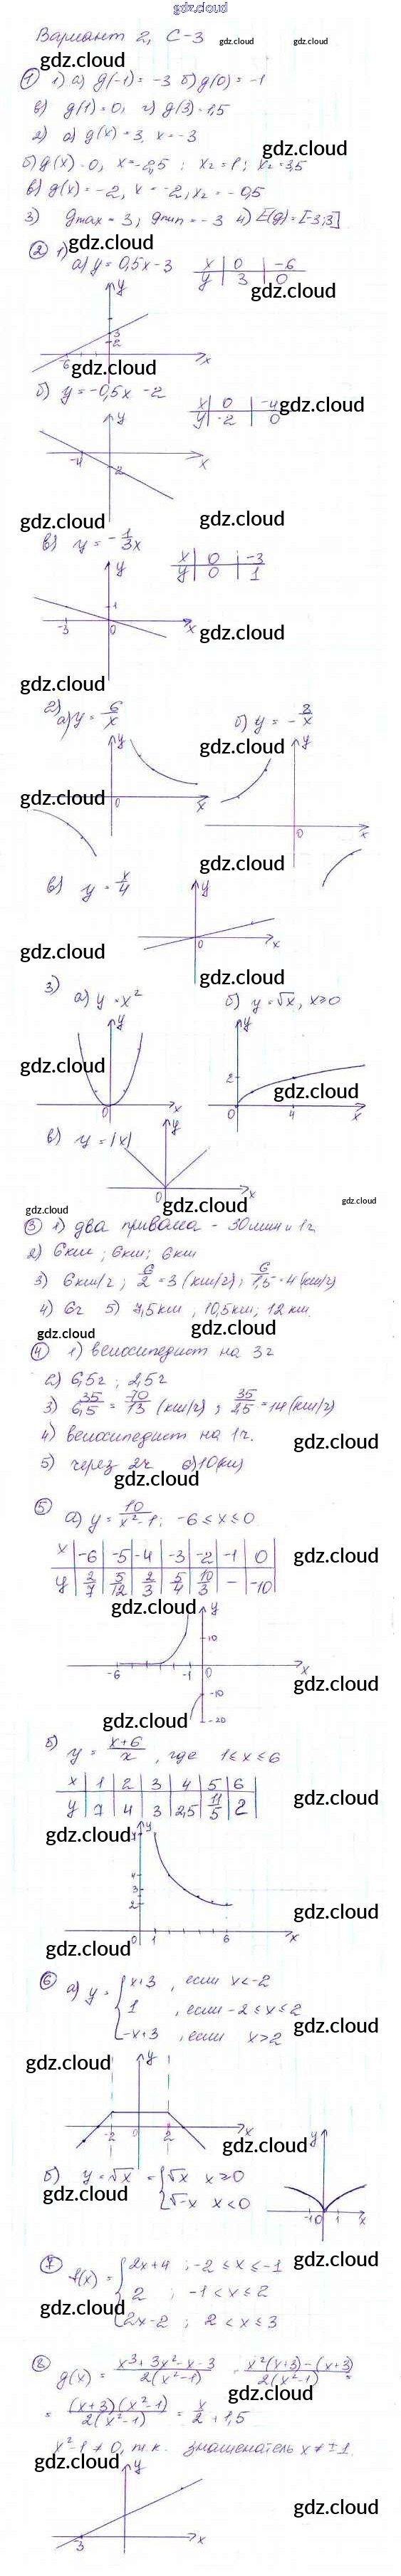 gdz.cloud
Вариант 2, С-3 gdz.cloud gdz.cloud
gdz.cloud
① 1) а) g(-1) = -3 б) g(0) = -1
в) g(1) = 0, г) g(3) = 1,5
2) а) g(x) = 3, x = -3
gdz.cloud
б) g(x) = 0, x = -2,5 ; x₂ = 1 ; x₂ = 3,5
в) g(x) = -2, x = -2, x₂ = -0,5
3) gmax = 3; gmin = -3 4) E(g) = [-3;3]
gdz.cloud
② 1)
а) y = 0,5x - 3 x | 0 | -6
y | 3 | 0
gdz.cloud
y
3
2
-6
x
gdz.cloud
б) y = -0,5x - 2
x | 0 | -4
y | -2 | 0
gdz.cloud
y
-4
x
2
gdz.cloud gdz.cloud
в) y = -1/3x
x | 0 | -3
y | 0 | 1
y
1
-3 0 x
gdz.cloud
gdz.cloud
2) а) y = 6/x б) y = -8/x
gdz.cloud
y y
gdz.cloud
0 x
0 x
gdz.cloud
в) y = x/4
y
gdz.cloud
0 x
gdz.cloud
3)
а) y = x² б) y = √x, x ≥ 0
y y
gdz.cloud
2
gdz.cloud
0 x 0 4 x
в) y = |x|
y
0 x
gdz.cloud gdz.cloud gdz.cloud
③ 1) два привала - 30 мин и 1 ч
2) 6 км ; 6 км ; 6 км
3) 6 км/ч ; 6/2 = 3 (км/ч) ; 6/1,5 = 4 (км/ч)
4) 6ч 5) 7,5 км , 10,5 км; 12 км.
gdz.cloud gdz.cloud
④ 1) велосипедист на 3 ч
2) 6,5 ч ; 2,5 ч
3) 35/6,5 = 70/13 (км/ч) ; 35/2,5 = 14 (км/ч)
4) велосипедист на 1 ч.
gdz.cloud
5) через 2 ч 6) 10 (км)
gdz.cloud
⑤ а) y = 10/x²-1 ; -6 ≤ x ≤ 0
x | -6 | -5 | -4 | -3 | -2 | -1 | 0
gdz.cloud
y | 2/7 | 5/12 | 2/3 | 5/4 | 10/3 | - | -10
gdz.cloud
y
10
-6 -1 0 x
gdz.cloud
-10
-20
gdz.cloud
б) y = x+6/x , где 1 ≤ x ≤ 6
x | 1 | 2 | 3 | 4 | 5 | 6
gdz.cloud
y | 7 | 4 | 3 | 2,5 | 11/5 | 2
gdz.cloud
y
4
3
2
gdz.cloud
1 6 x
gdz.cloud
⑥ а) y = { x+3 , если x < -2
1 , если -2 ≤ x ≤ 2
gdz.cloud
-x+3 , если x > 2
gdz.cloud
y
-2 0 2 x
gdz.cloud
y
б) y = √x = { √x x ≥ 0
√-x x < 0
gdz.cloud
-1 0 1 x
⑦ f(x) = { 2x+4 ; -2 ≤ x ≤ -1
2 ; -1 < x ≤ 2
gdz.cloud
2x-2 ; 2 < x ≤ 3
⑧ g(x) = x³+3x²-x-3/2(x²-1) = x²(x+3)-(x+3)/2(x²-1) =
gdz.cloud
= (x+3)(x²-1)/2(x²-1) = x/2 + 1,5
x²-1 ≠ 0, т.к. знаменатель x ≠ ±1.
gdz.cloud
y
gdz.cloud
-3 x